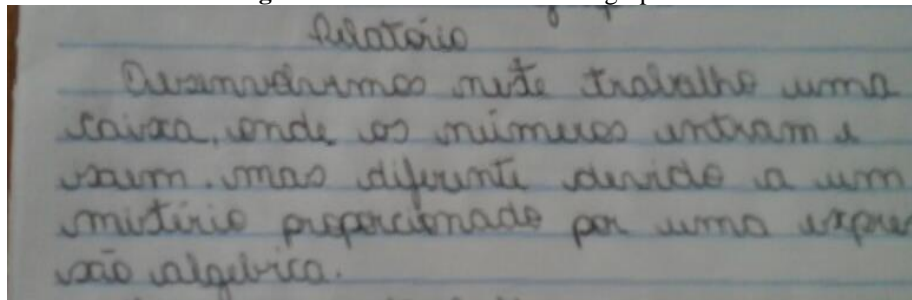 Relatório
Desenvolvemos neste trabalho uma
caixa, onde os números entram e
saem. mas diferente devido a um
mistério proporcionado por uma expres
são algebrica.